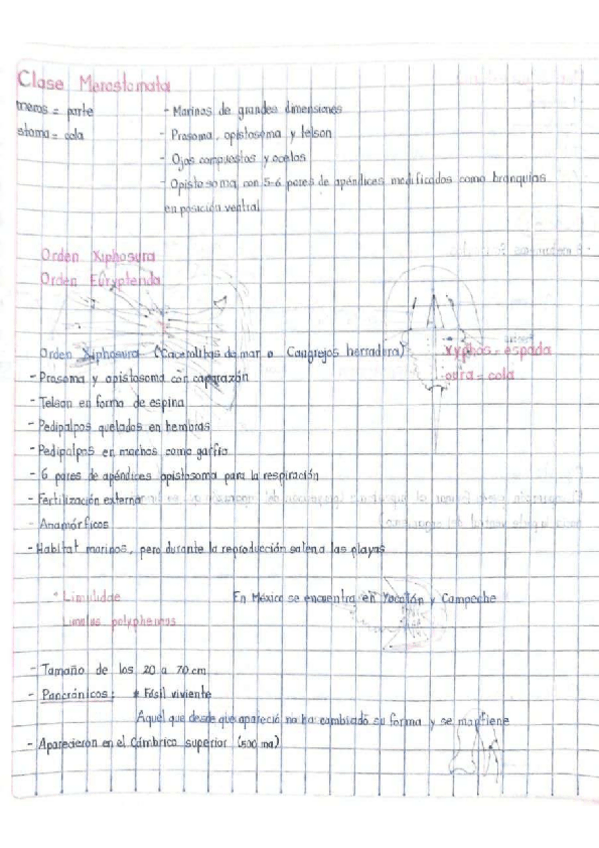 Clase Merostomata
meros = parte
stoma = cola
- Marinos de grandes dimensiones
- Prosoma, opistosoma y telson
- Ojos compuestos y ocelos
- Opistosoma con 5-6 pares de apéndices modificados como branquias
en posición ventral
Orden Xiphosura
Orden Eurypterida
Orden Xiphosura (Cacerolitas de mar o Cangrejos herradura)
Xyphos = espada
oura = cola
- Prosoma y opistosoma con caparazón
- Telson en forma de espina
- Pedipalpos quelados en hembras
- Pedipalpos en machos como garfio
- 6 pares de apéndices opistosoma para la respiración
- Fertilización externa
- Anamórficos
- Habitat marinos, pero durante la reproducción salen a las playas
* Limulidae
En México se encuentra en Yucatán y Campeche
Limulus polyphemus
- Tamaño de los 20 a 70 cm
- Pancrónicos: # Fósil viviente
Aquel que desde que apareció no ha cambiado su forma y se mantiene
- Aparecieron en el Cámbrico superior (500 ma)